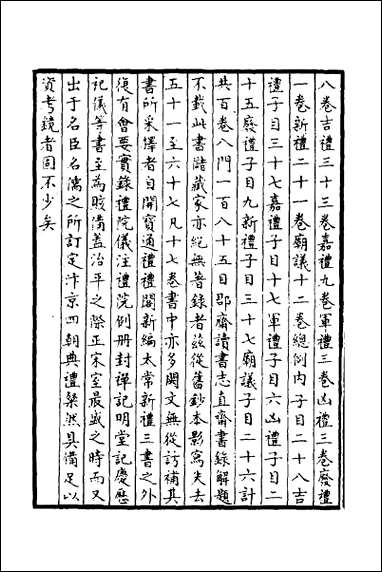 八卷吉禮三十三卷嘉禮九卷軍禮三卷凶禮三卷廢禮
一卷新禮二十一卷廟議十二卷總例內子目二十八吉
禮子目三十七嘉禮子目十七軍禮子目六凶禮子目二
十五廢禮子目九新禮子目三十七廟議子目二十六計
共百卷八門一百八十五目郡齋讀書志直齋書錄解題
不載此書儲藏家亦絕無著錄者茲從舊鈔本影寫失去
五十一至六十七凡十七卷書中亦多闕文無從訪補其
書所采擇者自開寶通禮禮閣新編太常新禮三書之外
復有會要實錄禮院儀注禮院例冊封禪記明堂記慶曆
祀儀等書至為賅備蓋治平之際正宋室最盛之時而又
出于名臣名儒之所訂定汴京四朝典禮粲然具備足以
資考鏡者固不少矣